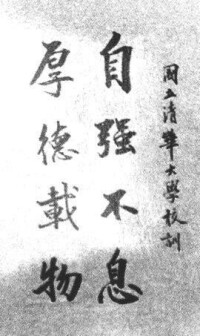 國立清華大學校訓
自强不息
厚德載物